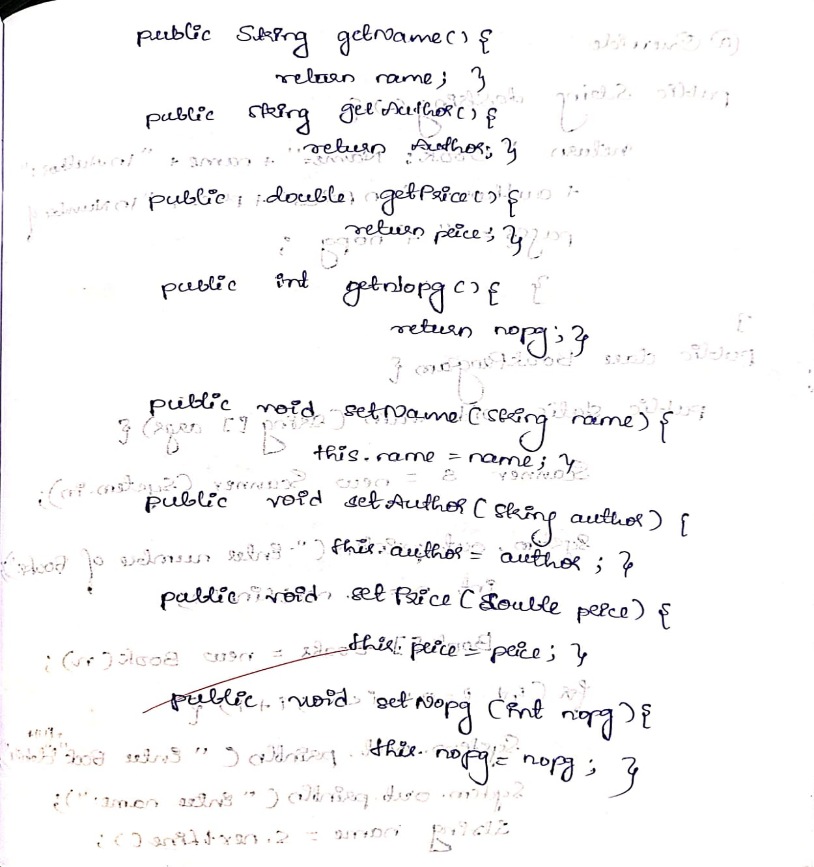 public String getName() {
return name; }
public String getAuthor() {
return Author; }
public double getPrice() {
return price; }
public int getNopg() {
return nopg; }
public void setName (String name) {
this.name = name; }
public void setAuthor (String author) {
this.author = author ; }
public void set Price (double price) {
this.price = price; }
public void set Nopg (int nopg) {
this.nopg = nopg ; }